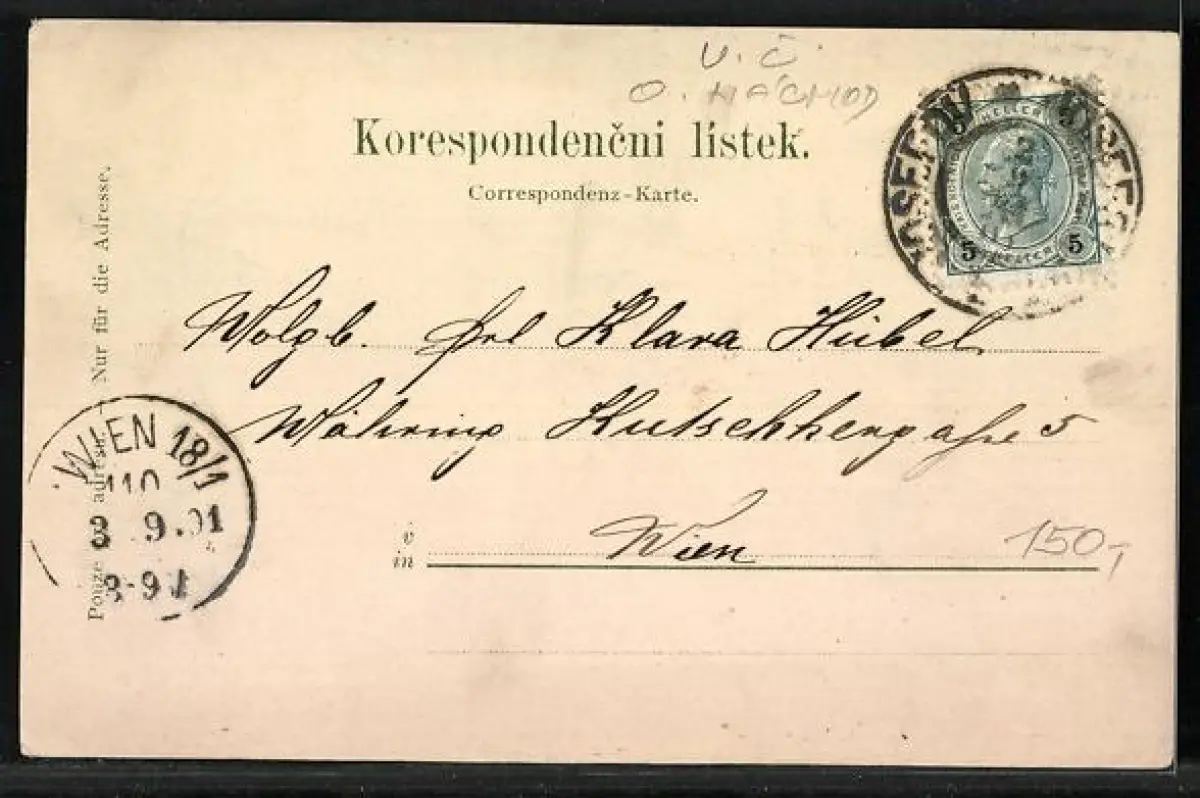 V. Č.
O. NÁCHOD
Korespondenční lístek.
Correspondenz-Karte.
JOSEFOV JOSEF
5 5
HELLER
5 5
Wolgb. Frl Klara Hübel
Währing Kutschkergasse 5
v
in Wien
150,-
Pouze pro adresu. Nur für die Adresse.
WIEN 18/1
110
9.01
8-9V